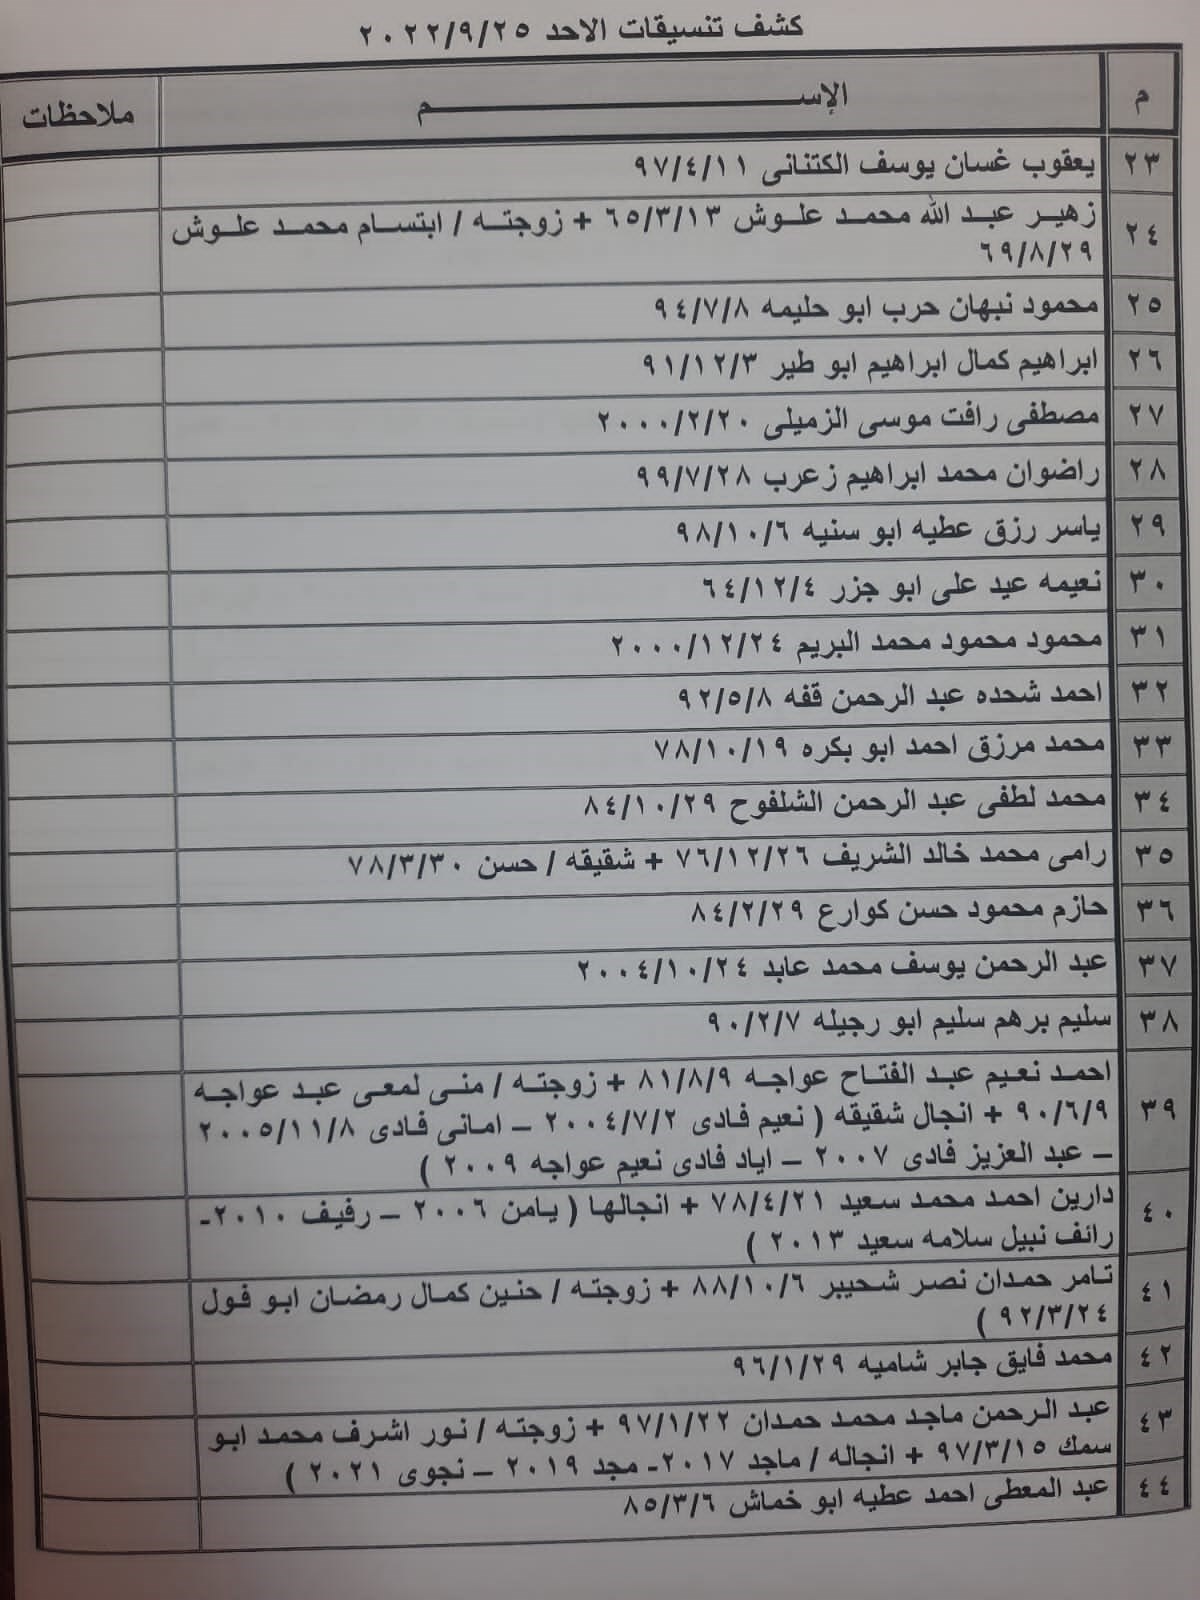 كشف تنسيقات الاحد ٢٠٢٢/٩/٢٥
م الإســـــم ملاحظات
٢٣ يعقوب غسان يوسف الكتنانى ٩٧/٤/١١
٢٤ زهير عبد الله محمد علوش ٦٥/٣/١٣ + زوجته / ابتسام محمد علوش
٦٩/٨/٢٩
٢٥ محمود نبهان حرب ابو حليمه ٩٤/٧/٨
٢٦ ابراهيم كمال ابراهيم ابو طير ٩١/١٢/٣
٢٧ مصطفى رافت موسى الزميلى ٢٠٠٠/٢/٢٠
٢٨ راضوان محمد ابراهيم زعرب ٩٩/٧/٢٨
٢٩ ياسر رزق عطيه ابو سنيه ٩٨/١٠/٦
٣٠ نعيمه عيد على ابو جزر ٦٤/١٢/٤
٣١ محمود محمود محمد البريم ٢٠٠٠/١٢/٢٤
٣٢ احمد شحده عبد الرحمن قفه ٩٢/٥/٨
٣٣ محمد مرزق احمد ابو بكره ٧٨/١٠/١٩
٣٤ محمد لطفى عبد الرحمن الشلفوح ٨٤/١٠/٢٩
٣٥ رامى محمد خالد الشريف ٧٦/١٢/٢٦ + شقيقه / حسن ٧٨/٣/٣٠
٣٦ حازم محمود حسن كوارع ٨٤/٢/٢٩
٣٧ عبد الرحمن يوسف محمد عابد ٢٠٠٤/١٠/٢٤
٣٨ سليم برهم سليم ابو رجيله ٩٠/٢/٧
٣٩ احمد نعيم عبد الفتاح عواجه ٨١/٨/٩ + زوجته / منى لمعى عبد عواجه
٩٠/٦/٩ + انجال شقيقه ( نعيم فادى ٢٠٠٤/٧/٢ – امانى فادى ٢٠٠٥/١١/٨
– عبد العزيز فادى ٢٠٠٧ – اياد فادى نعيم عواجه ٢٠٠٩ )
٤٠ دارين احمد محمد سعيد ٧٨/٤/٢١ + انجالها ( يامن ٢٠٠٦ – رفيف ٢٠١٠-
رائف نبيل سلامه سعيد ٢٠١٣ )
٤١ تامر حمدان نصر شحيبر ٨٨/١٠/٦ + زوجته / حنين كمال رمضان ابو فول
٩٢/٣/٢٤ )
٤٢ محمد فايق جابر شاميه ٩٦/١/٢٩
٤٣ عبد الرحمن ماجد محمد حمدان ٩٧/١/٢٢ + زوجته / نور اشرف محمد ابو
سمك ٩٧/٣/١٥ + انجاله / ماجد ٢٠١٧- مجد ٢٠١٩ – نجوى ٢٠٢١ )
٤٤ عبد المعطى احمد عطيه ابو خماش ٨٥/٣/٦